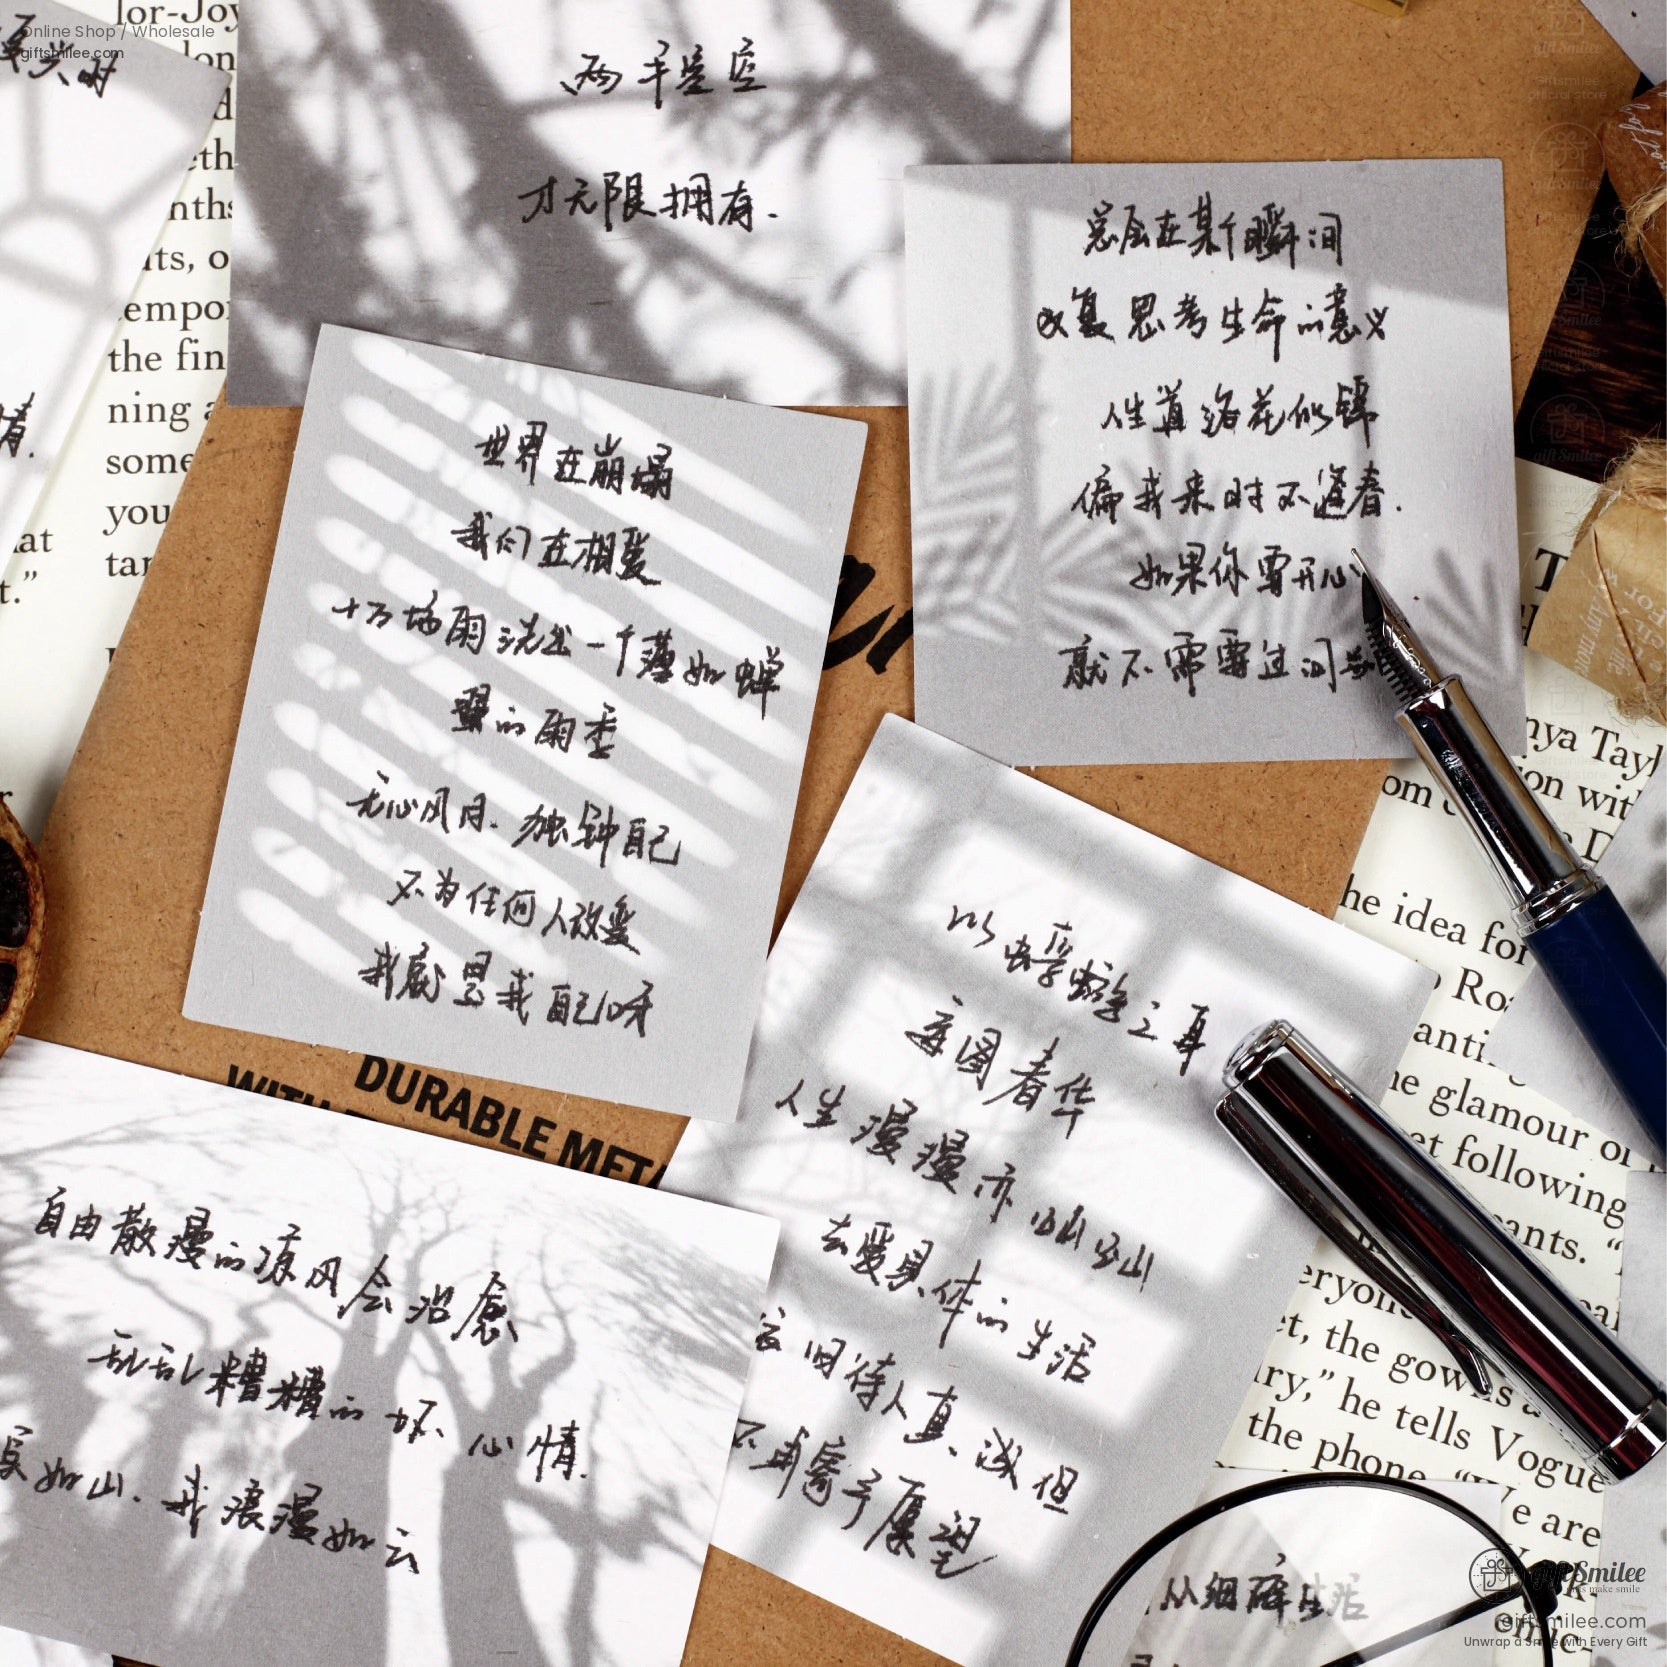 Online Shop / Wholesale
giftsmilee.com
lor-Joy
复兴时
eth
nths
ats, o
empor
the fin
ning a
some
you
tan
情.
at
t.”
两千星空
才无限拥有.
总会在某个瞬间
反复思考生命的意义
人生道路花似锦
偏我来时不逢春.
如果你要开心
就不需要过问
世界在崩塌
我们在相爱
十万场雨洗出一个薄如蝉
翼的雨季
无心风月.独钟自己
不为任何人改变
我就是我自己呀
DURABLE META
以蜉蝣之身
妄图春华
人生漫漫亦山山
去爱具体的生活
旧待人真诚但
不再寄予厚望
自由散漫的凉风会治愈
乱乱糟糟的坏心情.
如山.我浪漫如云
nya Tayl
on with
he idea for
Ro
anti
e glamour or
et following
ants. “
eryone
et, the gowns a
ry,” he tells Vogue
the phone. “We are
从细碎生活
gift Smilee
gifts make smile
giftsmilee.com
Unwrap a Smile with Every Gift